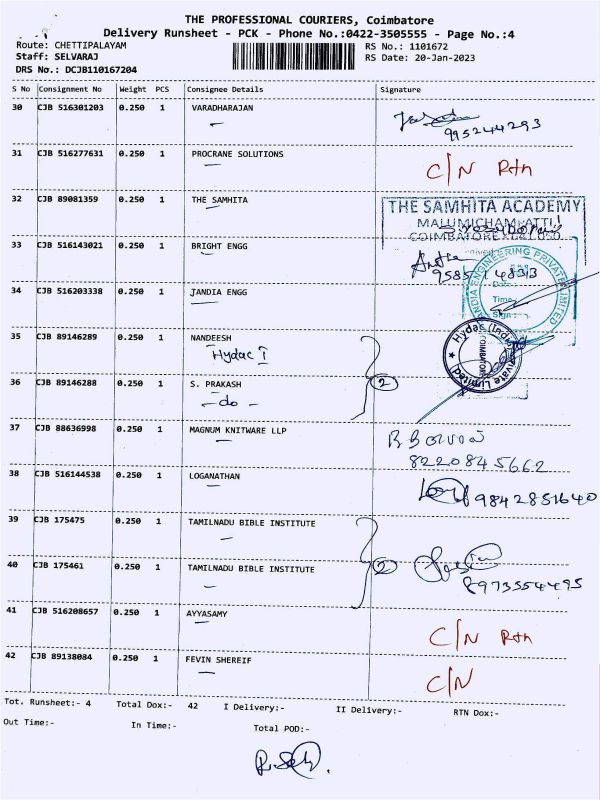 THE PROFESSIONAL COURIERS, Coimbatore
Delivery Runsheet - PCK - Phone No.:0422-3505555 - Page No.:4
Route: CHETTIPALAYAM RS No.: 1101672
Staff: SELVARAJ RS Date: 20-Jan-2023
DRS No.: DCJB110167204
S No Consignment No Weight PCS Consignee Details Signature
30 CJB 516301203 0.250 1 VARADHARAJAN
995244293
31 CJB 516277631 0.250 1 PROCRANE SOLUTIONS
C/N Rtn
32 CJB 89081359 0.250 1 THE SAMHITA
THE SAMHITA ACADEMY
MALUMICHAMPATTI
33 CJB 516143021 0.250 1 BRIGHT ENGG
34 CJB 516203338 0.250 1 JANDIA ENGG
JANDIA ENGINEERING PRIVATE LIMITED
Time
Sign
35 CJB 89146289 0.250 1 NANDEESH
Hydac I
Hydac (India) Private Limited
COIMBATORE
36 CJB 89146288 0.250 1 S. PRAKASH
- do - 2
37 CJB 88636998 0.250 1 MAGNUM KNITWARE LLP
8220845662
38 CJB 516144538 0.250 1 LOGANATHAN
9842851640
39 CJB 175475 0.250 1 TAMILNADU BIBLE INSTITUTE
40 CJB 175461 0.250 1 TAMILNADU BIBLE INSTITUTE 2
8973554495
41 CJB 516208657 0.250 1 AYYASAMY
C/N Rtn
42 CJB 89138084 0.250 1 FEVIN SHEREIF
C/N
Tot. Runsheet:- 4 Total Dox:- 42 I Delivery:- II Delivery:- RTN Dox:-
Out Time:- In Time:- Total POD:-